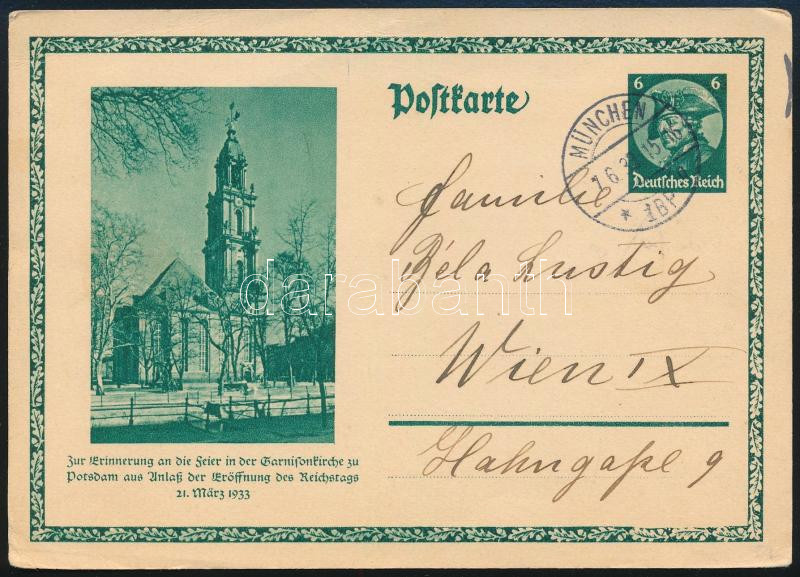 Postkarte
6 6
Deutsches Reich
MÜNCHEN
Familie
Béla Lustig
Wien IX
Hahngaße 9
darabanth
Zur Erinnerung an die Feier in der Garnisonkirche zu
Potsdam aus Anlaß der Eröffnung des Reichstags
21. März 1933